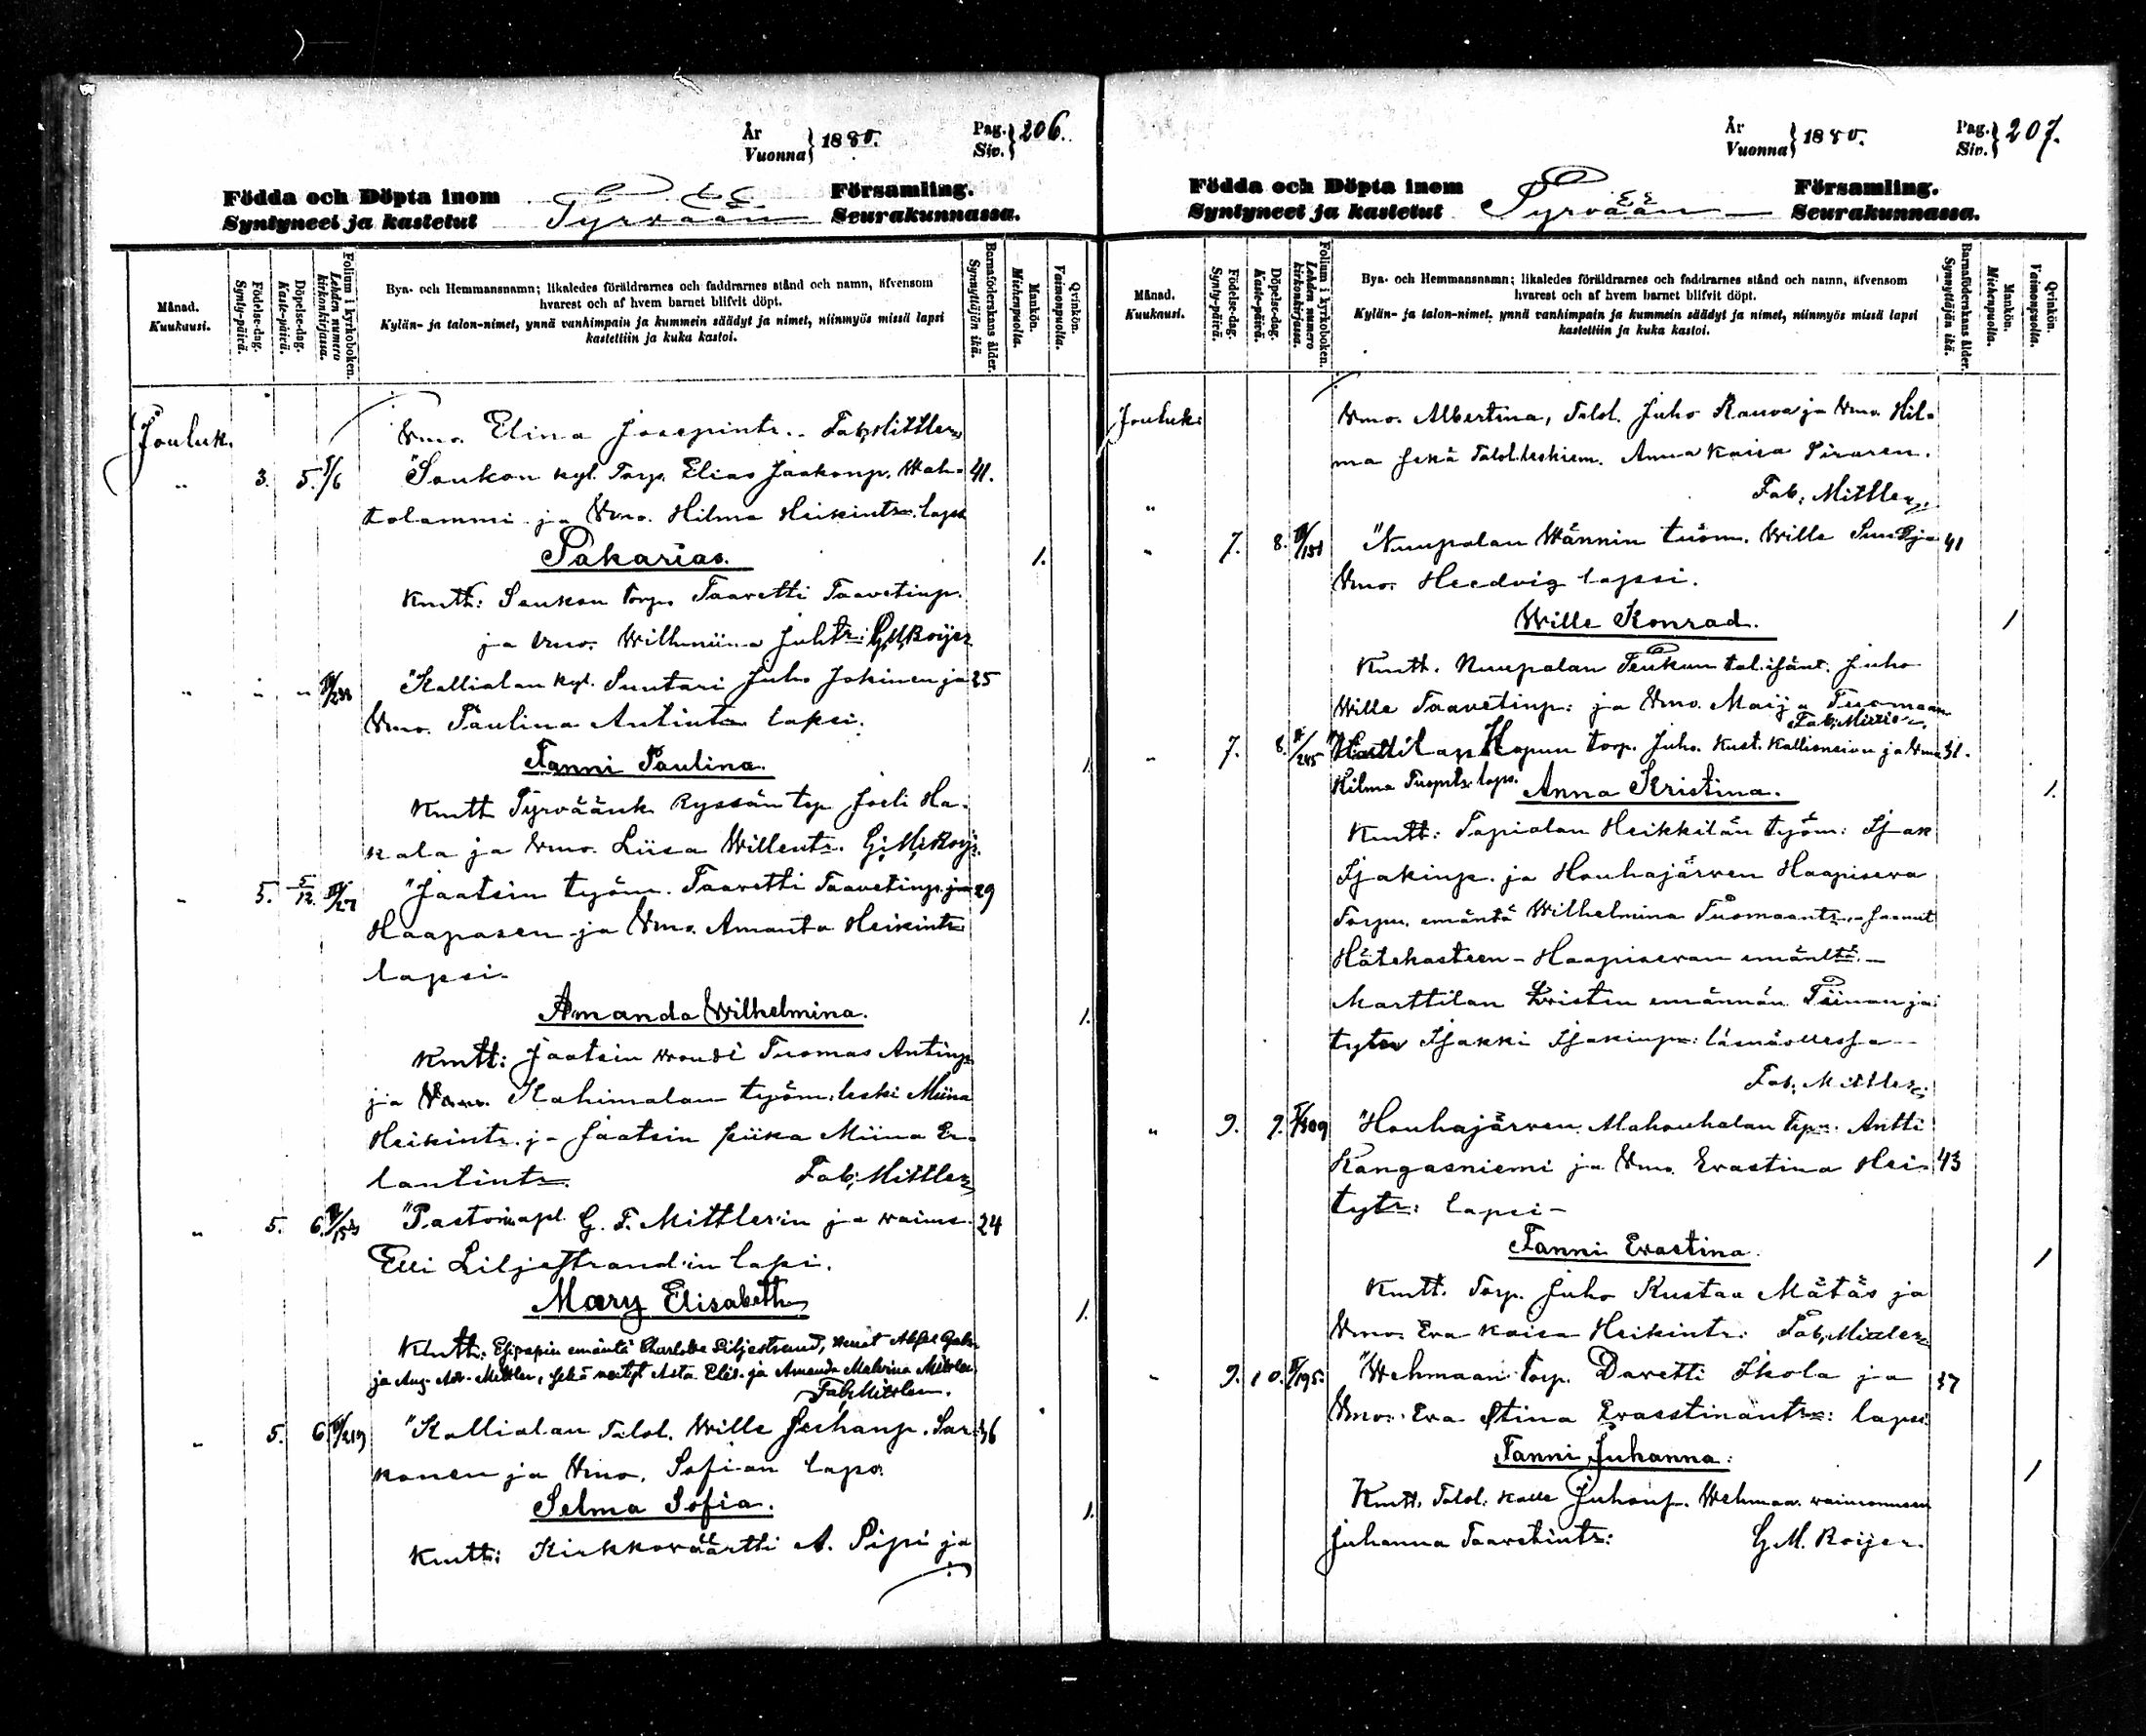 År
Vuonna } 1880.
Pag.
Siv. } 206.
Födda och Döpta inom
Syntyneet ja kastetut
Tyrvään
Församling.
Seurakunnassa.
Månad.
Kuukausi.
Födelse-dag.
Synty-päivä.
Döpelse-dag.
Kaste-päivä.
Folium i kyrkoboken.
Lehden numero kirkonkirjassa.
Bya- och Hemmansnamn; likaledes föräldrarnes och faddrarnes stånd och namn, äfvensom
hvarest och af hvem barnet blifvit döpt.
Kylän- ja talon-nimet, ynnä vanhimpain ja kummein säädyt ja nimet, niinmyös missä lapsi
kastettiin ja kuka kastoi.
Barnaföderskans ålder.
Synnyttäjän ikä.
Mankön.
Miehenpuolia.
Qvinkön.
Vaimonpuolia.
Jouluk. Vmo. Elina Josepintr. Fab. Mittler
" 3. 5. Soukon kyl. Torp. Elias Jaakonp. Wah- 41.
tolammi ja Vmo. Hilma Heikintr. lapsi
Sakarias. 1.
Kmtt: Soukon torp. Taavetti Taavetinp.
ja Vmo. Wilhmiina Juhtr: G. M. Roijer
" " " "Kallialan kyl. Suutari Juho Jokinen ja 25
Vmo. Paulina Antintr lapsi.
Fanni Paulina. 1
Kmtt Tyrväänk. Ryssän tp. Joeli Ha-
kala ja Vmo. Liisa Willentr. G. M. Roijr.
" 5. 5/12. "Jaatsin työm. Taavetti Taavetinp. ja 29
Haapasen ja Vmo. Amanta Heikintr
lapsi.
Amanda Wilhelmina. 1.
Kmtt: Jaatsin wouti Tuomas Antinp
ja Vmo. Kahimalan työm. leski Miina
Heikintr. ja Jaatsin piika Miina Er-
lantintr. Fab. Mittler
" 5. 6. "Pastorinapl. G. F. Mittler'in ja waimo 24
Elli Liljestrand'in lapsi.
Mary Elisabeth 1.
Kmtt: emäntä Charlotta Liljestrand,
ja Aug. Mittler, sekä Asta Elis. ja Amanda Malvina Mittler.
Fab. Mittler.
" 5. 6. 219 "Kallialan Talol. Wille Juhanp. Sar- 36
konen ja Vmo. Sofian laps.
Selma Sofia. 1.
Kmtt: Kirkkoväärtti A. Pipi ja
År
Vuonna } 1880.
Pag.
Siv. } 207.
Födda och Döpta inom
Syntyneet ja kastetut
Tyrvään
Församling.
Seurakunnassa.
Månad.
Kuukausi.
Födelse-dag.
Synty-päivä.
Döpelse-dag.
Kaste-päivä.
Folium i kyrkoboken.
Lehden numero kirkonkirjassa.
Bya- och Hemmansnamn; likaledes föräldrarnes och faddrarnes stånd och namn, äfvensom
hvarest och af hvem barnet blifvit döpt.
Kylän- ja talon-nimet, ynnä vanhimpain ja kummein säädyt ja nimet, niinmyös missä lapsi
kastettiin ja kuka kastoi.
Barnaföderskans ålder.
Synnyttäjän ikä.
Mankön.
Miehenpuolia.
Qvinkön.
Vaimonpuolia.
Jouluk: Vmo. Albertina, Talol. Juho Rauva ja Vmo. Hil-
ma sekä Talol. leskiem. Anna Kaisa
Fab. Mittler.
" 7. 8. "Nuupalan Wännin työm. Wille ja 41
Vmo. Heedvig lapsi.
Wille Konrad. 1
Kmtt. Nuupalan tal. isänt. Juho
Wille Taavetinp: ja Vmo. Maija Tuomaan
" 7. 8. 245 Hopun torp. Juho. Kust. ja Vmo 31.
Hilma laps. Anna Kristina. 1.
Kmtt: Tapialan Heikkilän työm: Isak
Isakinp. ja Houhajärven Haapiseva
Torpn. emäntä Wilhelmina Tuomaantr. saanut
Hätekasteen - Haapisevan emänltä. -
Marttilan emännän Tiinan ja
Isakki Isakinp: läsnäollessa -
Fab. Mittler.
" 9. 9. 309 "Houhajärven. Mahouhalan Tpn. Antti
Kangasniemi ja Vmo. Evastina Hei- 43
tytr: lapsi -
Fanni Evastina. 1
Kmtt. Torp. Juho Kustaa Mätäs ja
Vmo. Eva Kaisa Heikintr. Fab. Mittler
" 9. 10. 195. "Wehmaan Torp. Davetti Skola ja 37
Vmo. Eva Stina lapsi
Fanni Juhanna: 1
Kmtt. Talol. Kalle Juhonp. Wehmaa
Juhanna Taavetintr: G. M. Roijer.